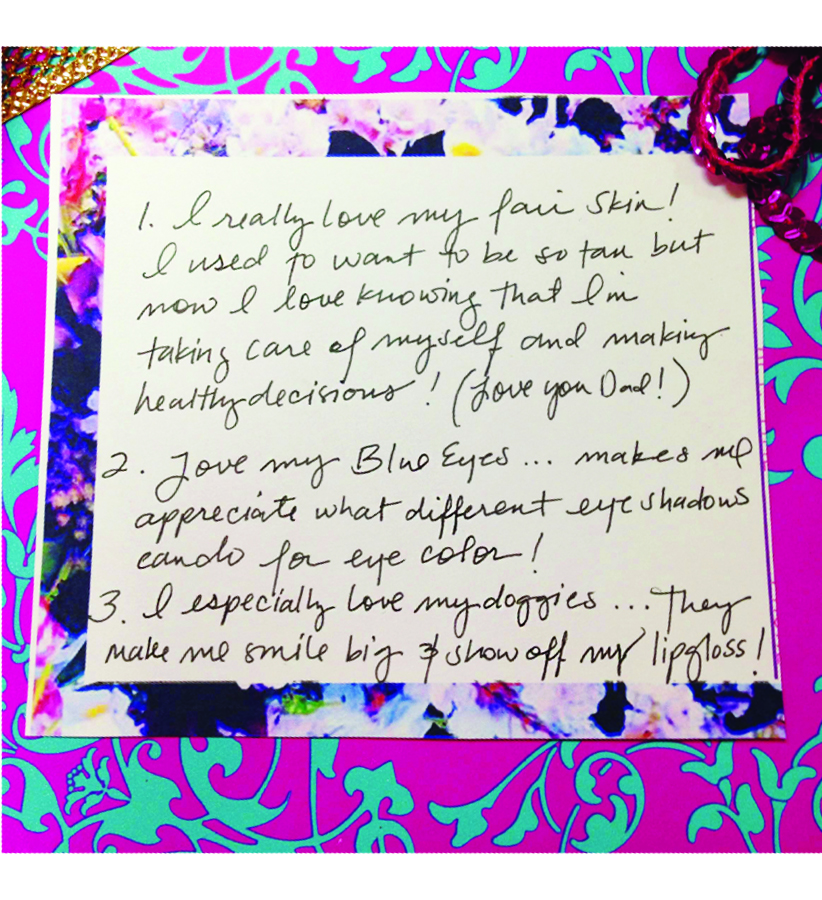 1. I really love my fair skin!
I used to want to be so tan but
now I love knowing that I'm
taking care of myself and making
healthy decisions! (Love you Dad!)
2. Love my Blue Eyes... makes me
appreciate what different eye shadows
can do for eye color!
3. I especially love my doggies... They
make me smile big & show off my lipgloss!